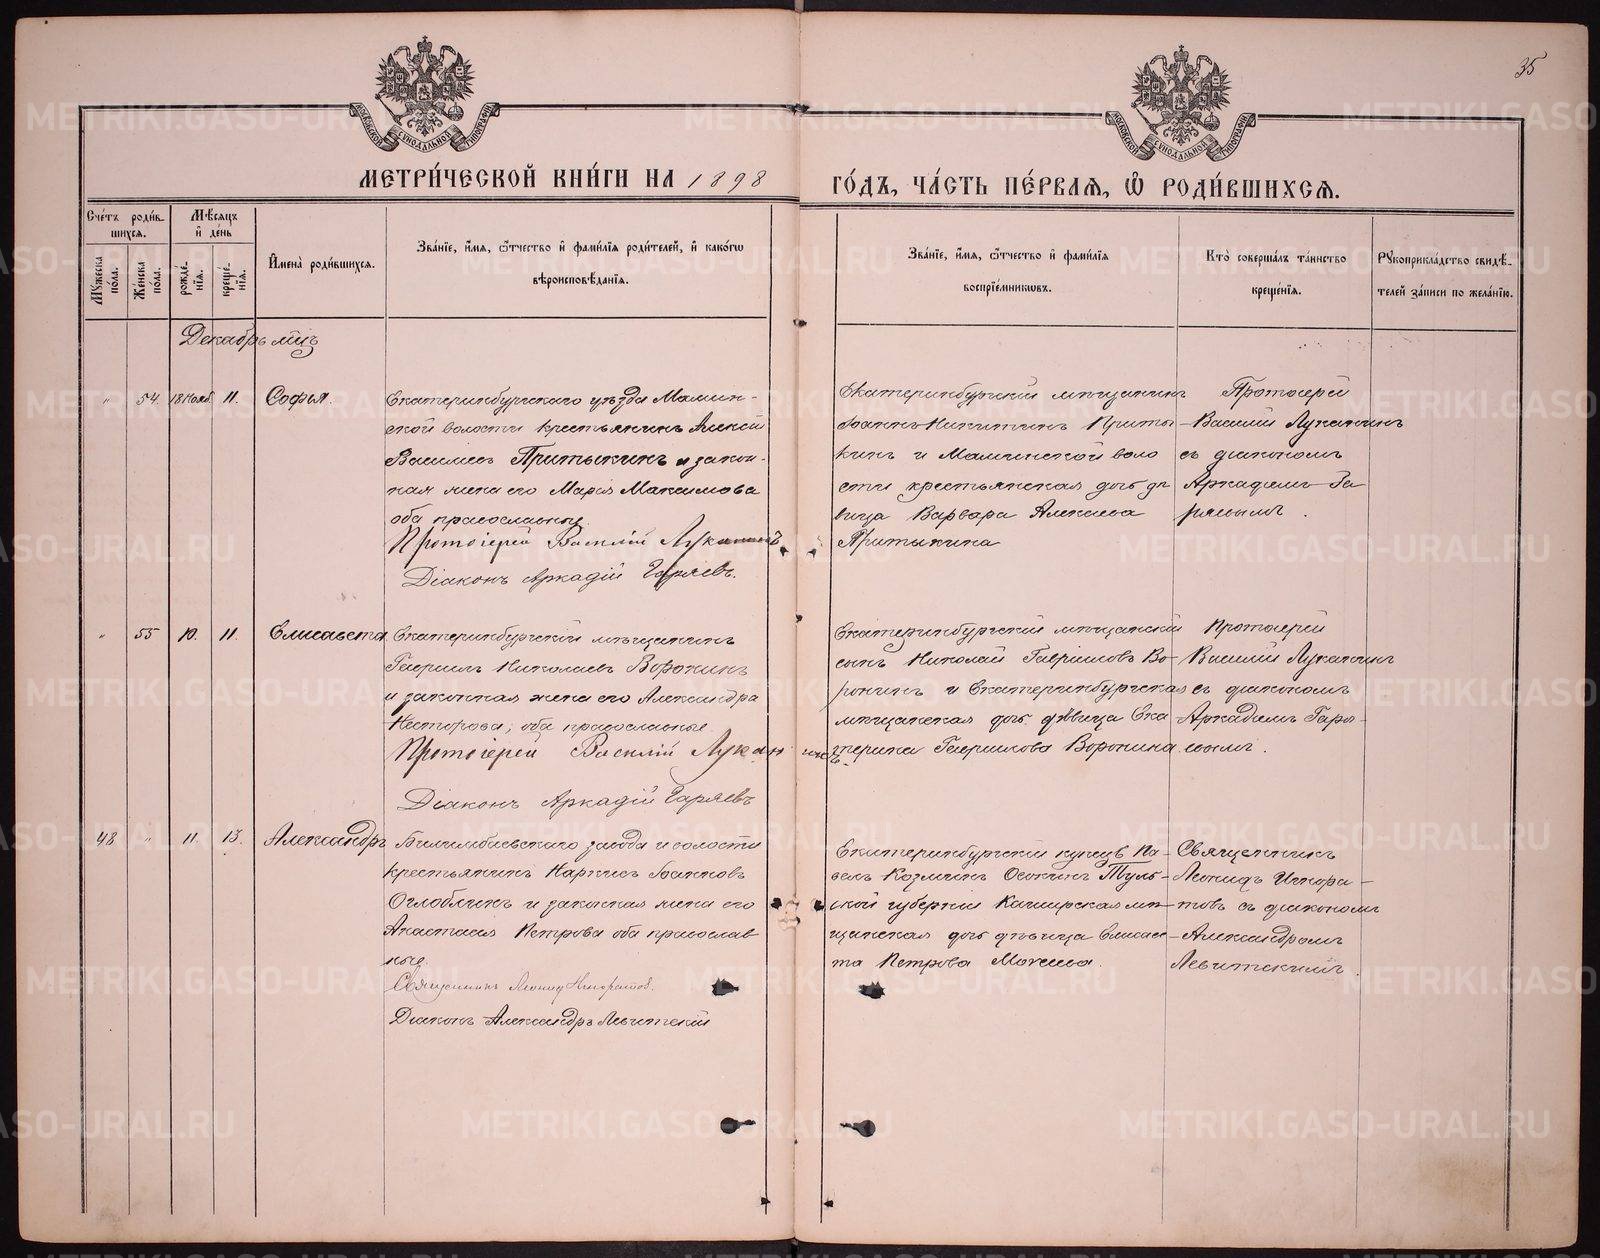 35
МОСКОВСКОЙ СѴНОДАЛЬНОЙ ТИПОГРАФИИ
МОСКОВСКОЙ СѴНОДАЛЬНОЙ ТИПОГРАФИИ
МЕТРИ́ЧЕСКОЙ КНИ́ГИ НА 1898 ГО́ДЪ, ЧА́СТЬ ПЕ́РВАЯ, Ѡ РОДИ́ВШИХСЯ.
Сче́тъ роди́вшихся.
Му́жеска по́ла.
Же́нска по́ла.
Мѣ́сяцъ и де́нь
рожде́нїя.
креще́нїя.
Имена̀ роди́вшихся.
Зва́нїе, и́мя, ѻ́тчество и фами́лїя роди́телей, и како́гѡ
вѣроисповѣ́данїя.
Зва́нїе, и́мя, ѻ́тчество и фами́лїя
воспрїе́мникѡвъ.
Кто̀ соверша́лъ та́инство
креще́нїя.
Рꙋкоприкла́дство свидѣ́-
телей за́писи по жела́нїю.
Декабрь мцъ
" 54. 18 Нояб. 11. Софья.
Екатеринбургскаго уѣзда Мамин-
ской волости крестьянинъ Алексѣй
Василіевъ Притыкинъ и закон-
ная жена его Марія Максимова
оба православные.
Протоіерей Василій Луканинъ
Діаконъ Аркадій Гаряевъ.
Екатеринбургскій мѣщанинъ
Іоаннъ Никитинъ Приты-
кинъ и Маминской воло
сти крестьянская дочь дѣ
вица Варвара Алексѣева
Притыкина
Протоіерей
Василій Луканинъ
съ діакономъ
Аркадіемъ Га
ряевымъ.
" 55 10. 11. Елисавета
Екатеринбургскій мѣщанинъ
Гавріилъ Николаевъ Воронинъ
и законная жена его Александра
Несторова, оба православные
Протоіерей Василій Луканинъ
Діаконъ Аркадій Гаряевъ
Екатеринбургскій мѣщанскій
сынъ Николай Гавріиловъ Во-
ронинъ и Екатеринбургская
мѣщанская дочь дѣвица Ека
терина Гавріилова Воронина.
Протоіерей
Василій Луканинъ
съ діакономъ
Аркадіемъ Гаря-
евымъ.
48 " 11. 13. Александръ
Билимбаевскаго завода и волости
крестьянинъ Наркисъ Іоанновъ
Оглоблинъ и законная жена его
Анастасія Петрова оба православ
ные.
Священникъ Леонид Игноратов.
Діаконъ Александръ Левитскій
Екатеринбургскій купецъ Па-
велъ Козминъ Осокинъ Туль-
ской губерніи Каширская мѣ-
щанская дочь дѣвица Елисаве-
та Петрова Мокеева.
Священникъ
Леонидъ Игнора-
товъ съ діакономъ
Александромъ
Левитскимъ.